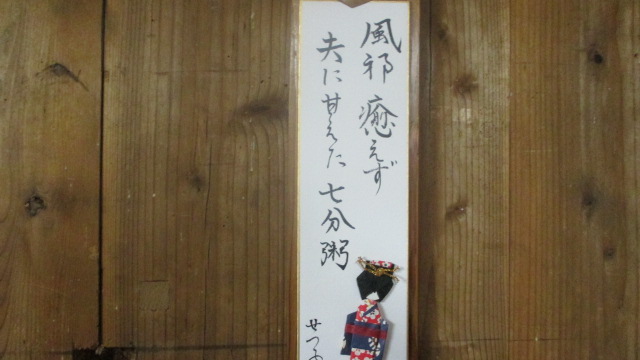 風邪癒えず
夫に甘えた七分粥
せつ